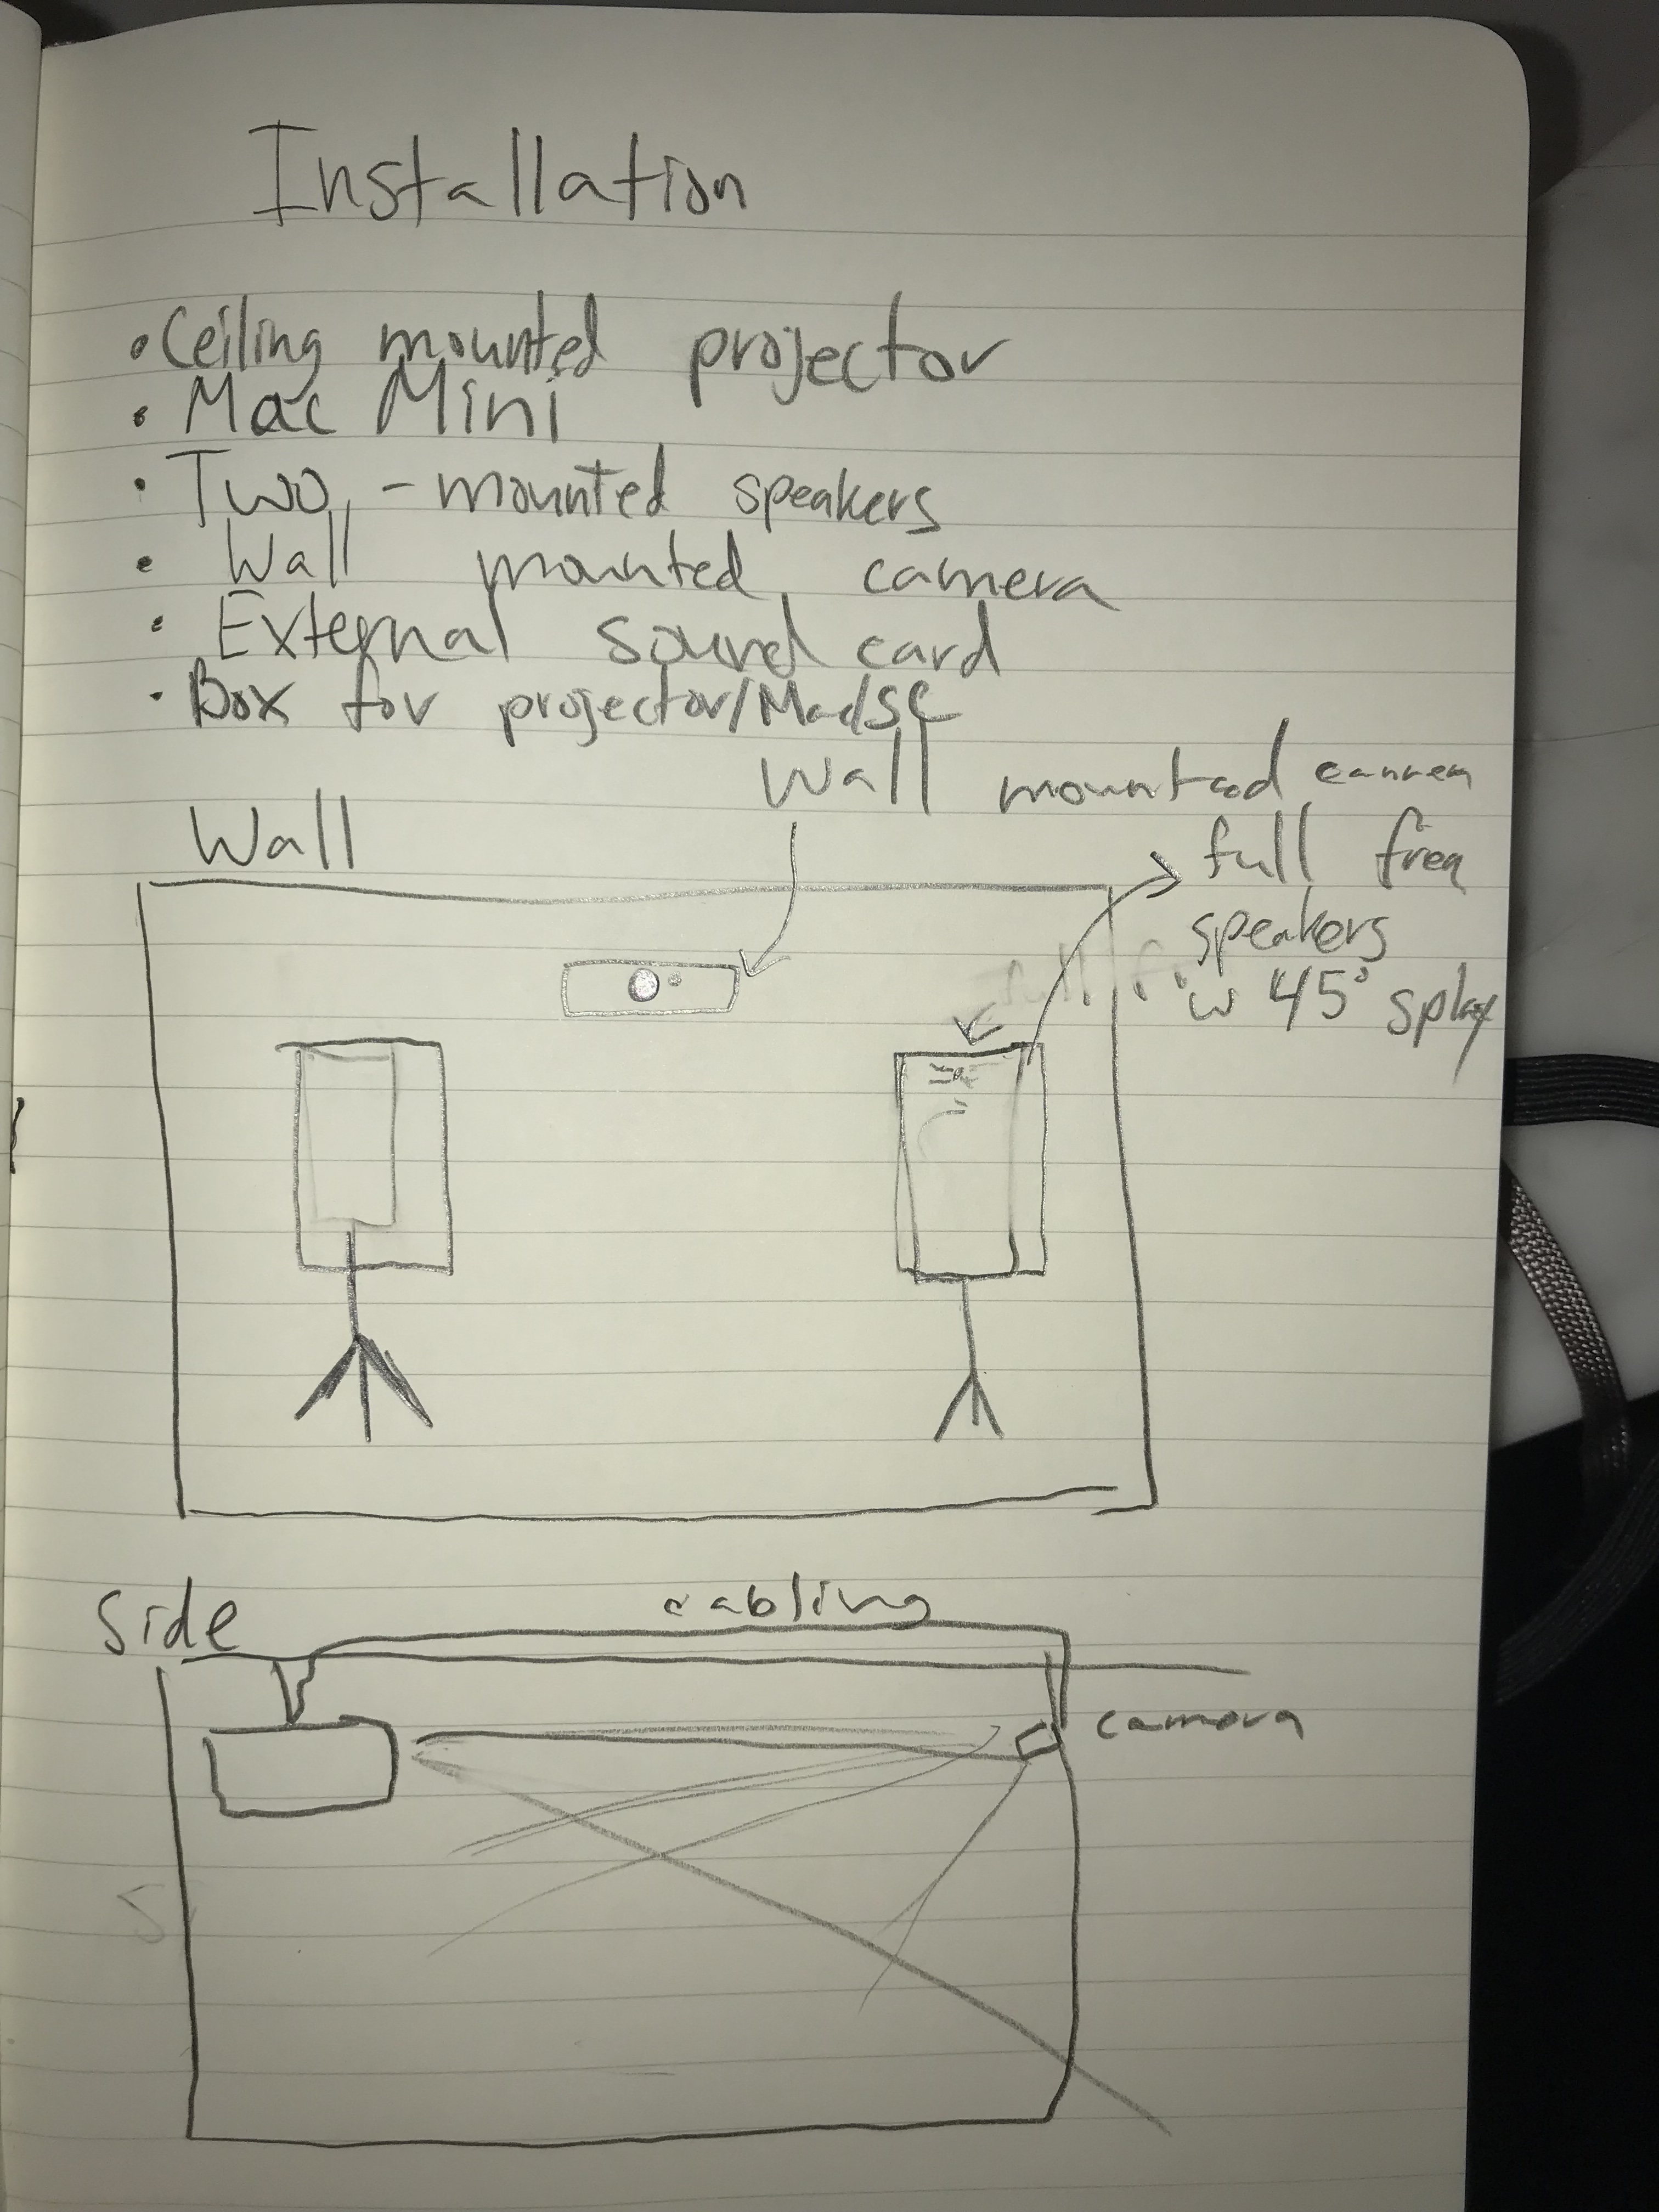 Installation
• Ceiling mounted projector
• Mac Mini
• Two, - mounted speakers
• Wall mounted camera
• External sound card
• Box for projector/Mac/SC
Wall mounted camera
Wall
full freq
speakers
w 45° splay
full f
Side
cabling
camera